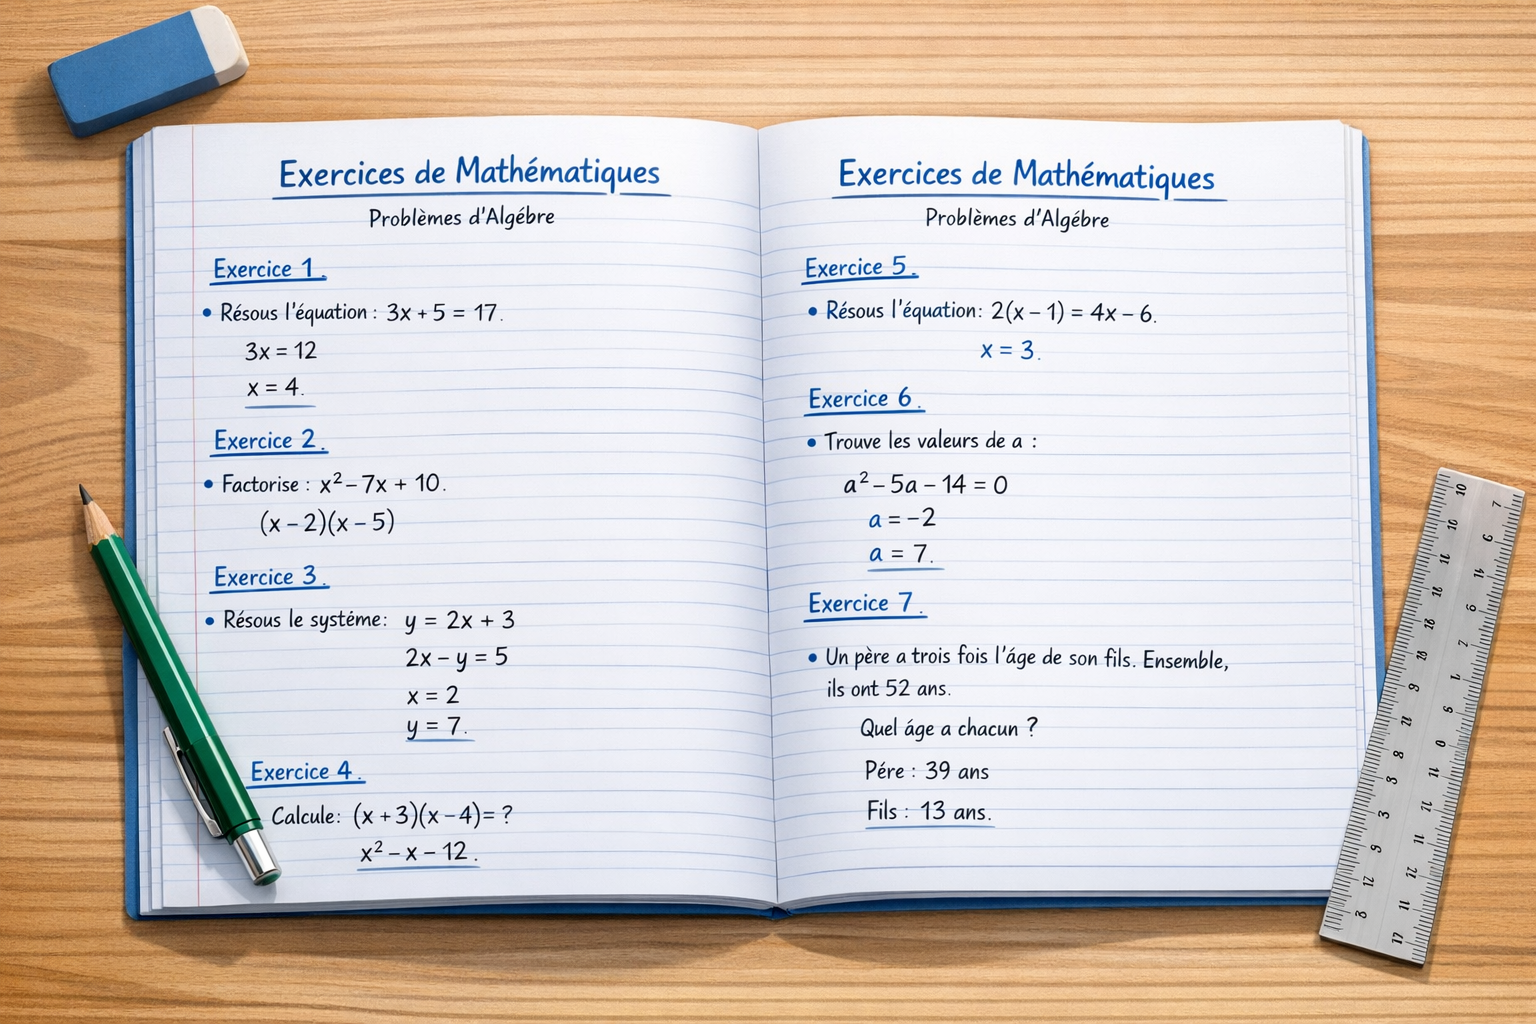 Exercices de Mathématiques
Problèmes d'Algébre
Exercice 1.
• Résous l'équation : 3x + 5 = 17.
3x = 12
x = 4.
Exercice 2.
• Factorise : x² – 7x + 10.
(x – 2)(x – 5)
Exercice 3.
• Résous le systéme: y = 2x + 3
2x – y = 5
x = 2
y = 7.
Exercice 4.
Calcule: (x + 3)(x – 4)= ?
x² – x – 12.
Exercices de Mathématiques
Problèmes d'Algébre
Exercice 5.
• Résous l'équation: 2(x – 1) = 4x – 6.
x = 3.
Exercice 6.
• Trouve les valeurs de a :
a² – 5a – 14 = 0
a = –2
a = 7.
Exercice 7.
• Un père a trois fois l'áge de son fils. Ensemble,
ils ont 52 ans.
Quel áge a chacun ?
Pére : 39 ans
Fils : 13 ans.